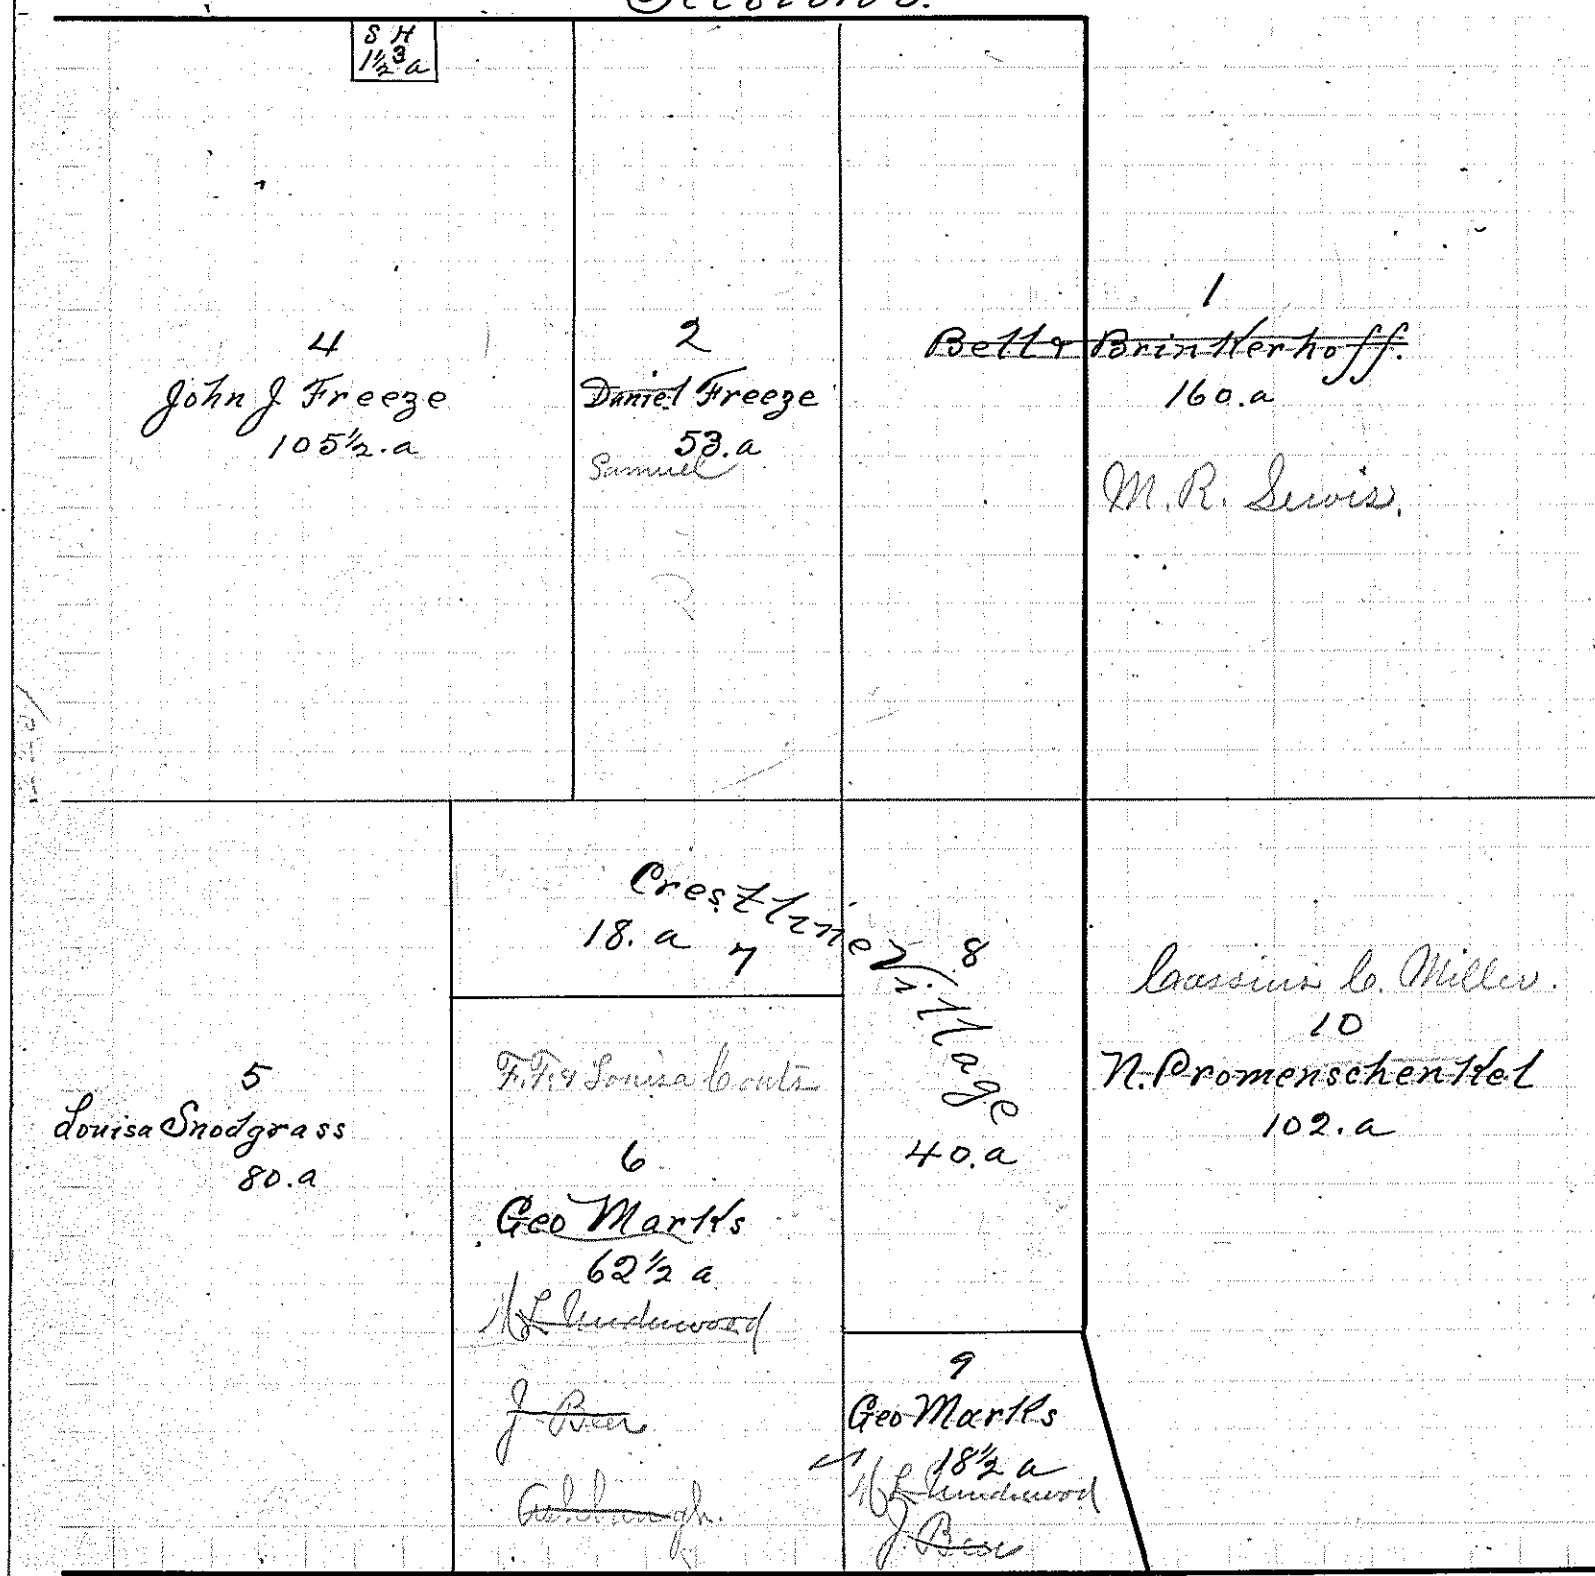 S H
3
1½ a
4
John J Freeze
105½.a
2
Daniel Freeze
53.a
Samuel
1
Bell & Brinkerhoff.
160.a
M. R. Lewis.
Crestline Village
18. a 7
8
40.a
Cassius C. Miller.
10
N. Promenschenkel
102.a
5
Louisa Snodgrass
80.a
F. F. & Louisa Couts
6
Geo Marks
62½ a
M L Underwood
J Beer
9
Geo Marks
18½ a
M L Underwood
J. Beer